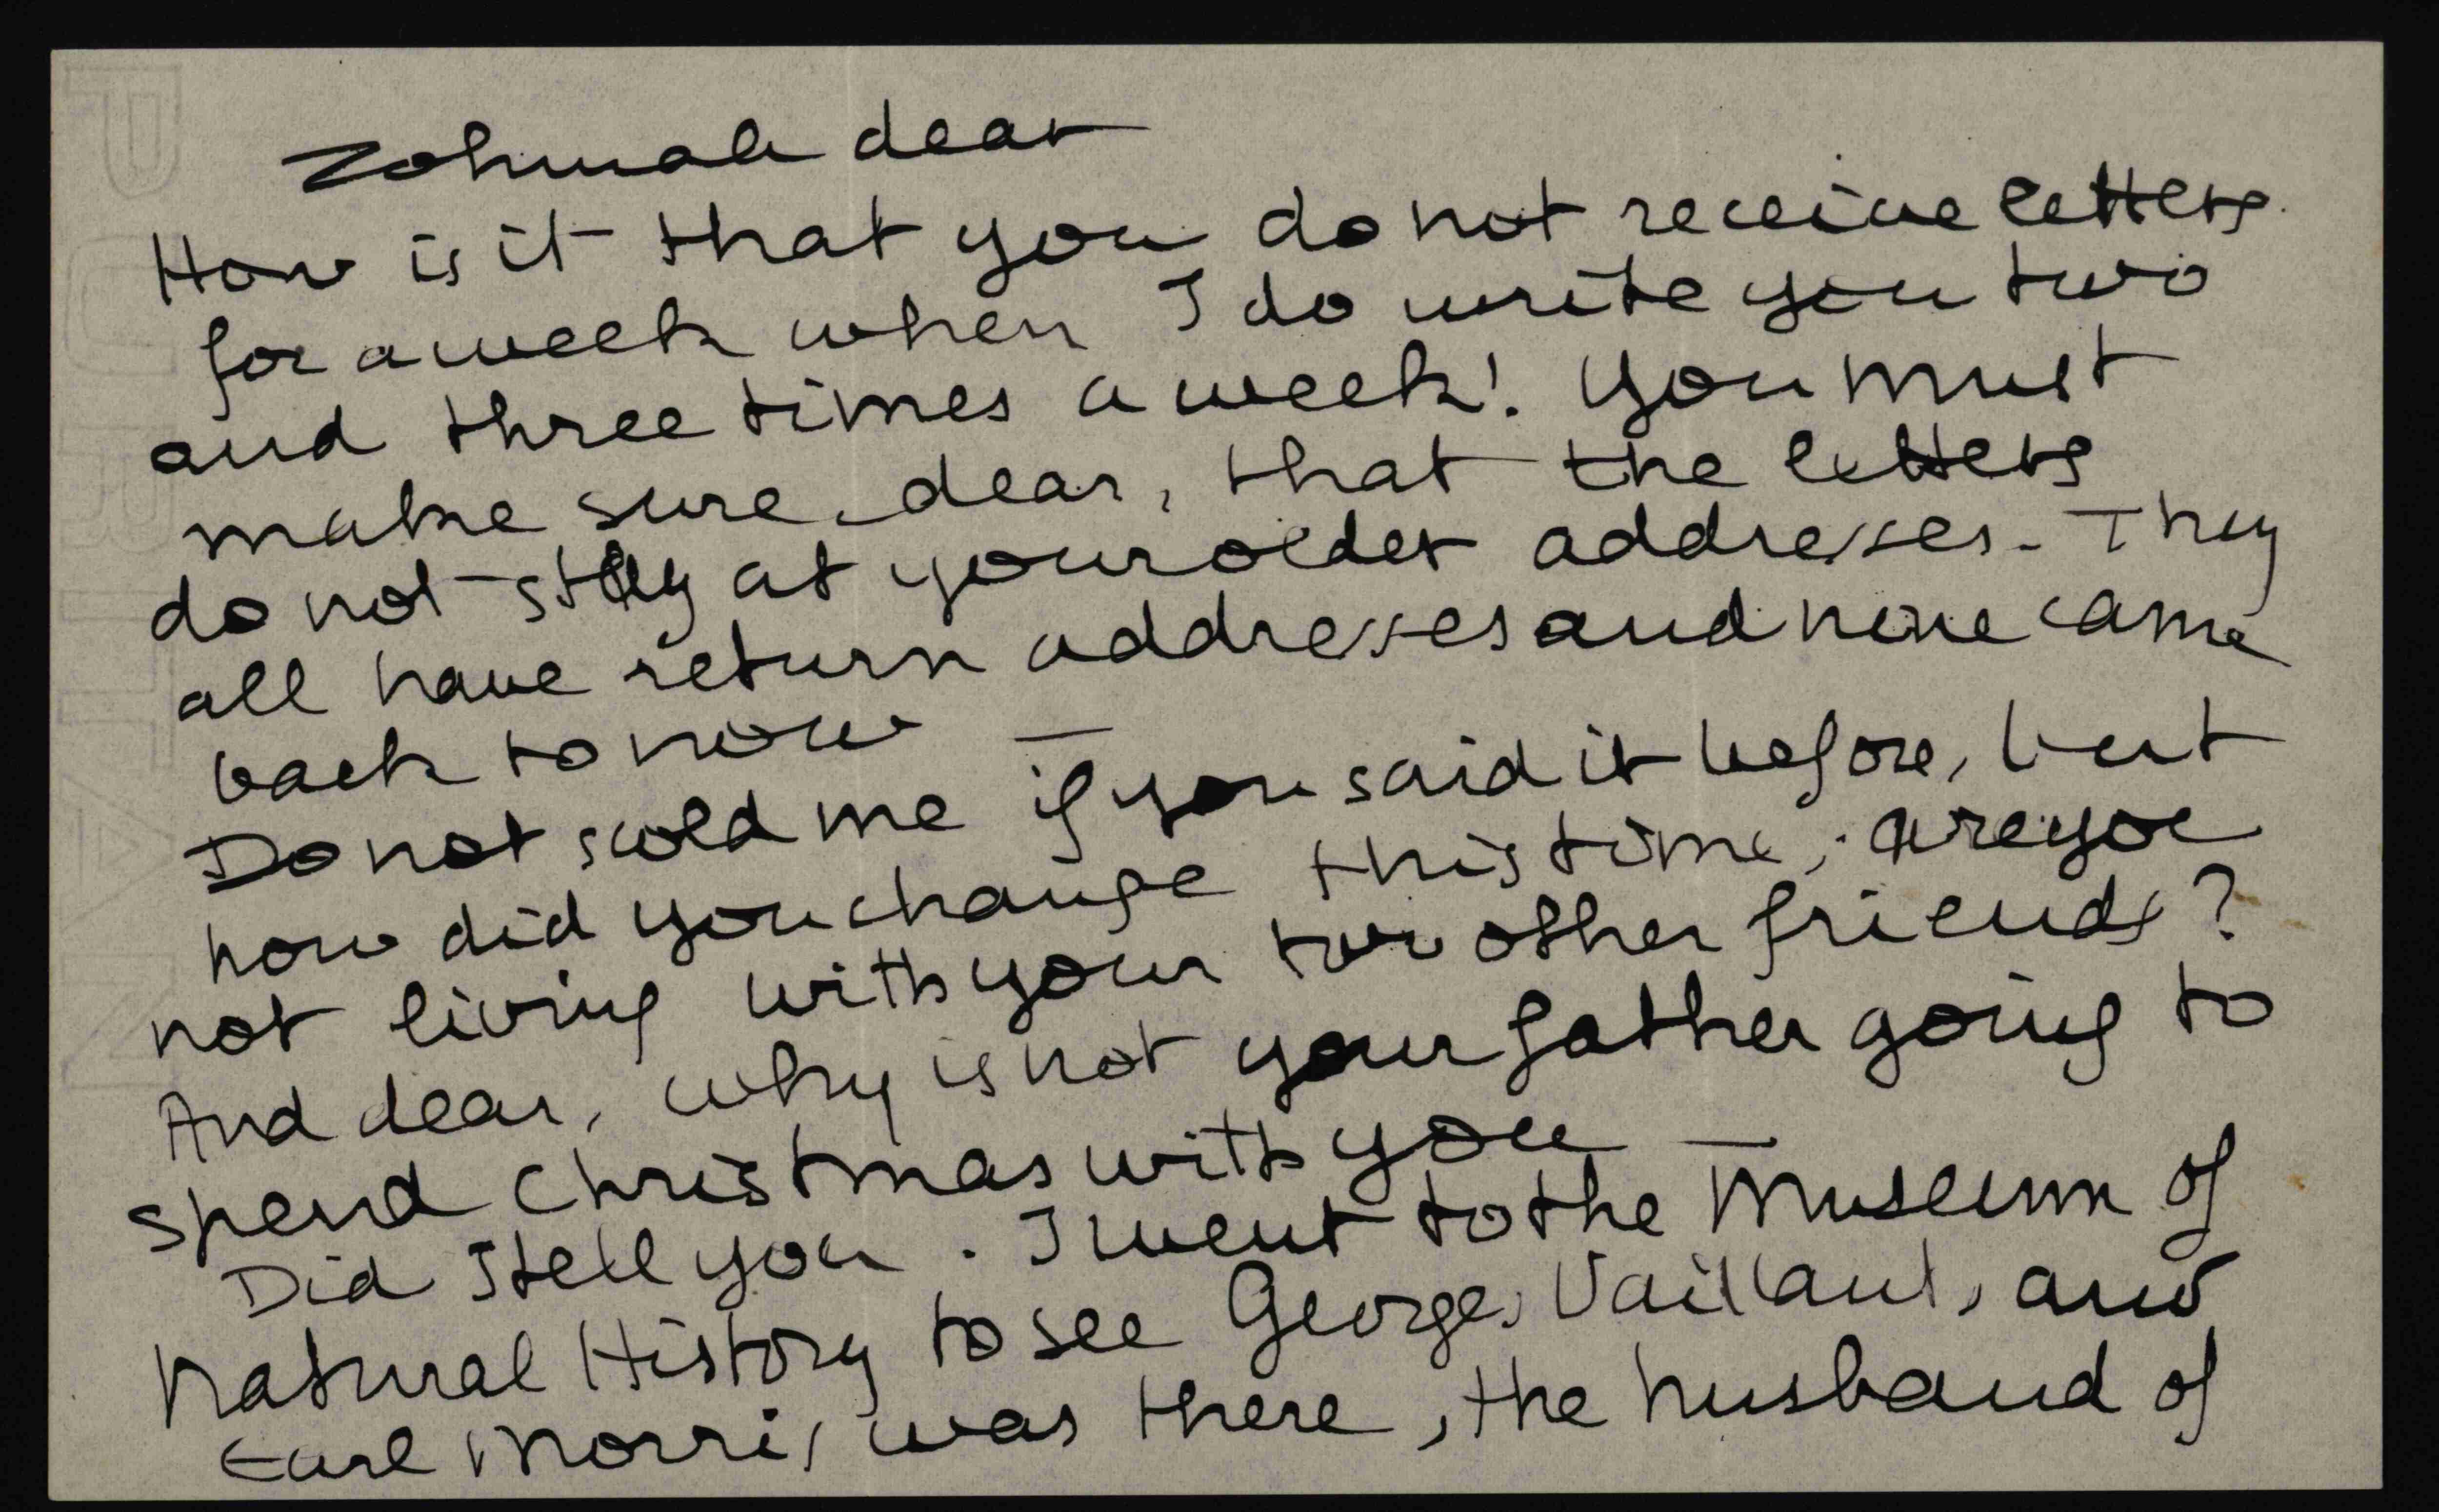 Zohmah dear
How is it that you do not receive letters
for a week when I do write you two
and three times a week! You must
make sure dear, that the letters
do not stay at your older addresses. They
all have return addresses and none came
back to now —
Do not scold me if you said it before, but
how did you change this time, are you
not living with your two other friends?
And dear, why is not your father going to
spend Christmas with you —
Did I tell you. I went to the Museum of
Natural History to see George, Vaillant, and
Earl Morris was there, the husband of